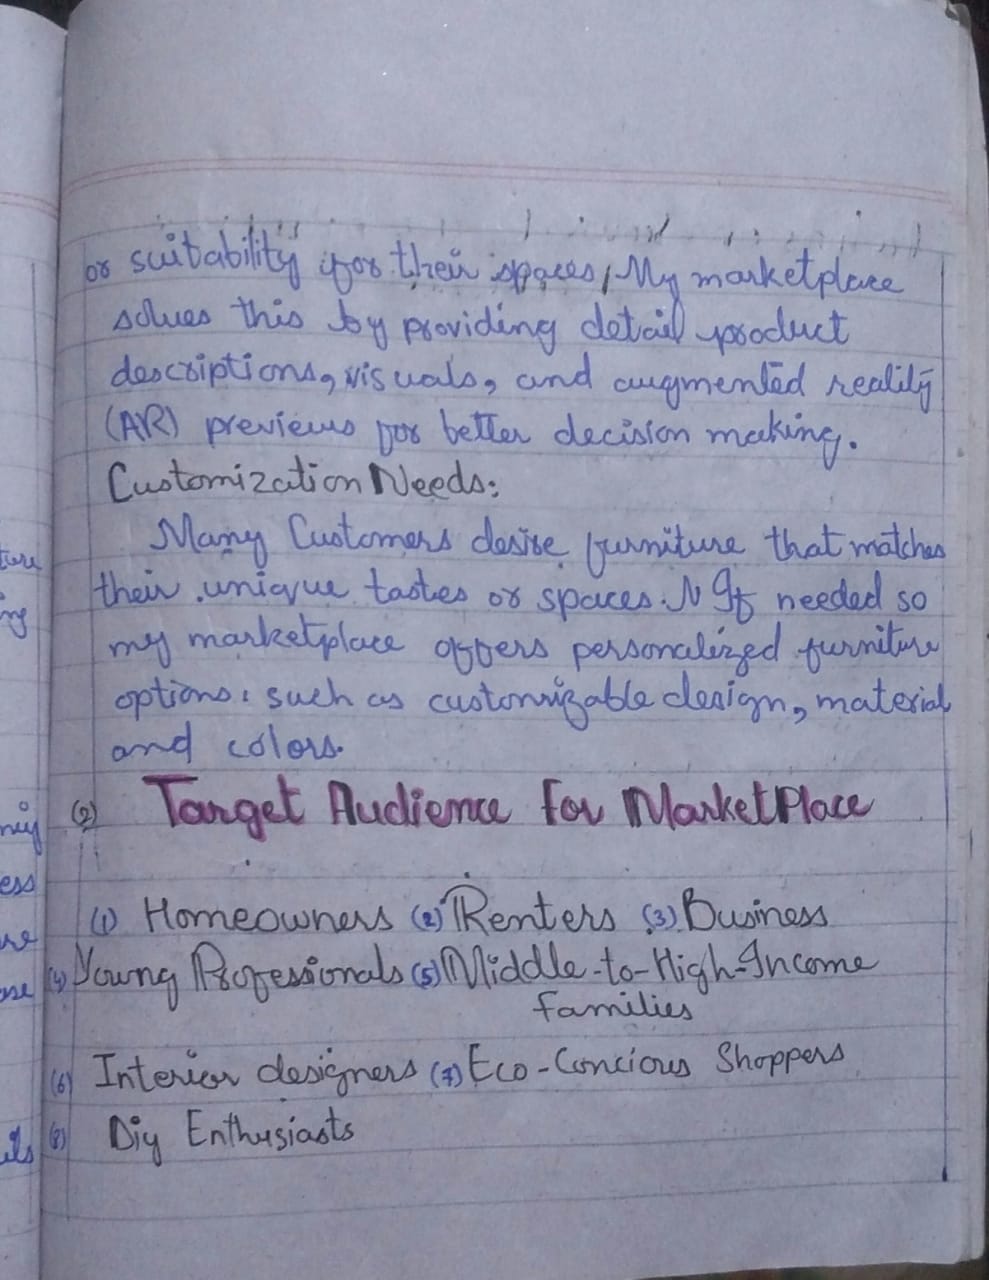 or suitability for their spaces, My marketplace
solves this by providing detail product
descriptions, visuals, and augmented reality
(AR) previews for better decision making.
Customization Needs:
Many Customers desire furniture that matches
their unique tastes or spaces. If needed so
my marketplace offers personalized furniture
options. such as customizable design, material
and colors.
(2) Target Audience for MarketPlace
(1) Homeowners (2) Renters (3) Business
(4) Young Professionals (5) Middle-to-High-Income
families
(6) Interior designers (7) Eco-Concious Shoppers
(8) Diy Enthusiasts